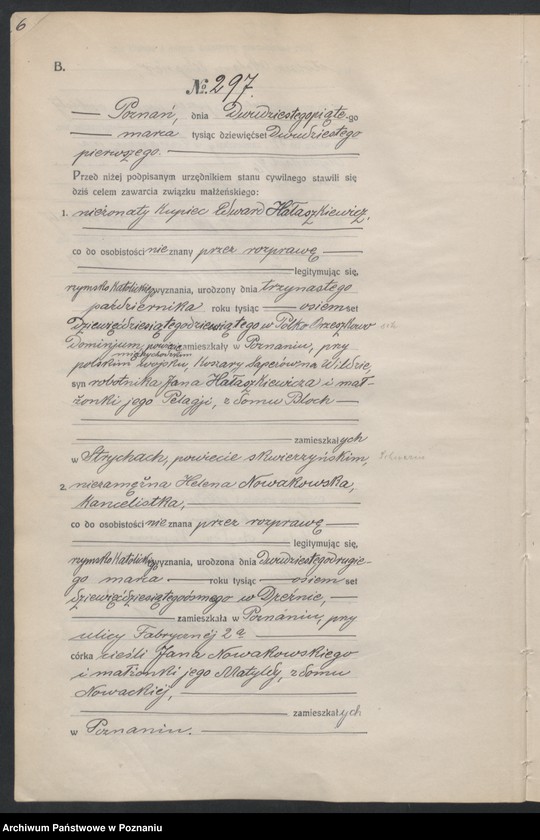 6
B.
№. 297.
Poznań, dnia Dwudziestegopiąte-go
marca tysiąc dziewięćset Dwudziestego
pierwszego.
Przed niżej podpisanym urzędnikiem stanu cywilnego stawili się
dziś celem zawarcia związku małżeńskiego:
1. nieżonaty Kupiec Edward Hałaszkiewicz,
co do osobistości nieznany przez rozprawę
legitymując się,
rzymsko Katolickiego wyznania, urodzony dnia trzynastego
października roku tysiąc osiemset
dziewięćdziesiątegodziewiątego w
Dominjum, powiat zamieszkały w Poznaniu, przy
międzychodzkim
polskim wojsku, Koszary Saperów na Wildzie,
syn robotnika Jana Hałaszkiewicza i mał-
żonki jego Pelagji, z domu Bloch
zamieszkałych
w Strychach, powiecie skwierzyńskim,
2. niezamężna Helena Nowakowska,
Kancelistka,
co do osobistości nieznana przez rozprawę
legitymując się,
rzymsko Katolickiego wyznania, urodzona dnia Dwudziestegodrugie-
go marca roku tysiąc osiemset
dziewięćdziesiątegoósmego w Dreźnie,
zamieszkała w Poznaniu, przy
ulicy Fabrycznéj 2a
córka cieśli Jana Nowakowskiego
i małżonki jego Matyldy, z domu
Nowackiéj,
zamieszkałych
w Poznaniu.
Archiwum Państwowe w Poznaniu